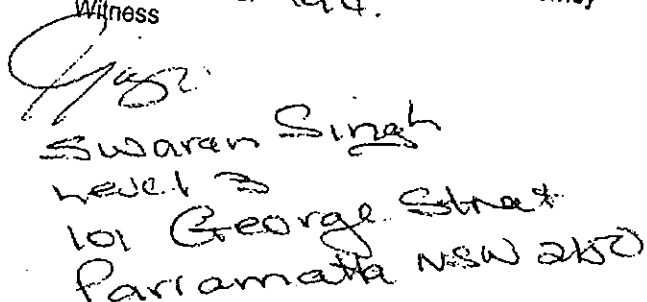 Witness
Swaran Singh
Level 3
101 George Street
Parramatta NSW 2150